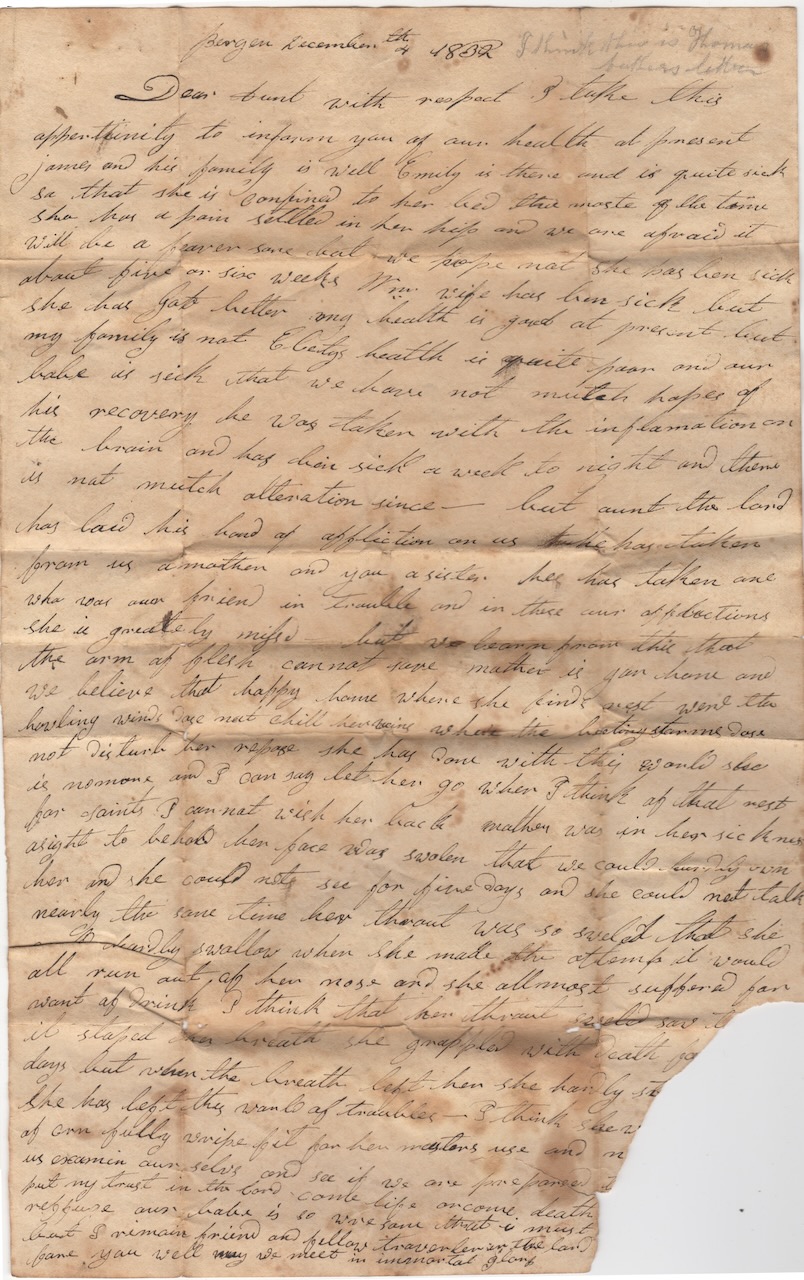 Bergen December 4th 1832
I think this is Thomas
letter
Dear Aunt with respect I take this
oppertunity to inform you of our health at present
james and his family is well Emily is there and is quite sick
so that she is Confined to her bed the moste of the time
sha has a pain settled in her hip and we are afraid it
will be a feaver sore but we hope not she has ben sick
about five or six weeks Wm wife has ben sick but
she has got better my health is good at present but
my family is not health is quite poor and our
babe is sick that we have not mutch hopes of
his recovery he was taken with the inflamation on
the brain and has bin sick a week to night and there
is not mutch alteration since — but aunt the lord
has laid his hand of affliction on us he has taken
from us a mother and you a sister hes has taken one
who was our friend in trouble and in these our afflictions
she is greately missd — but we learn from this that
the arm of flesh cannot save mother is gon home and
we believe that happy home where she finds rest were the
howling winds dose not chill her where the beating storms dose
not disturb her repose she has done with this world she
is nomore and I can say let her go when I think of that rest
for saints I cannot wish her back mother was in her sickness
asight to behold her face was swolen that we could hardly own
her and she could note see for five days and she could not talk
nearly the same time her throut was so sweled that she
hardly swallow when she made the attempt it would
all run out of her nose and she allmost suffered for
want of drink I think that her throut sweld
it stoped her breath she grappled with death
days but when the breath left her she hardly
she has left this world of troubles — I think she
of corn fully wripe fit for her masters use and
us examin our selvs and see if we are prepared
put my trust in the lord come life or come death
our babe is so wresone that i must
but I remain friend and fellow in the lord
fare you well may we meet in immortal glory